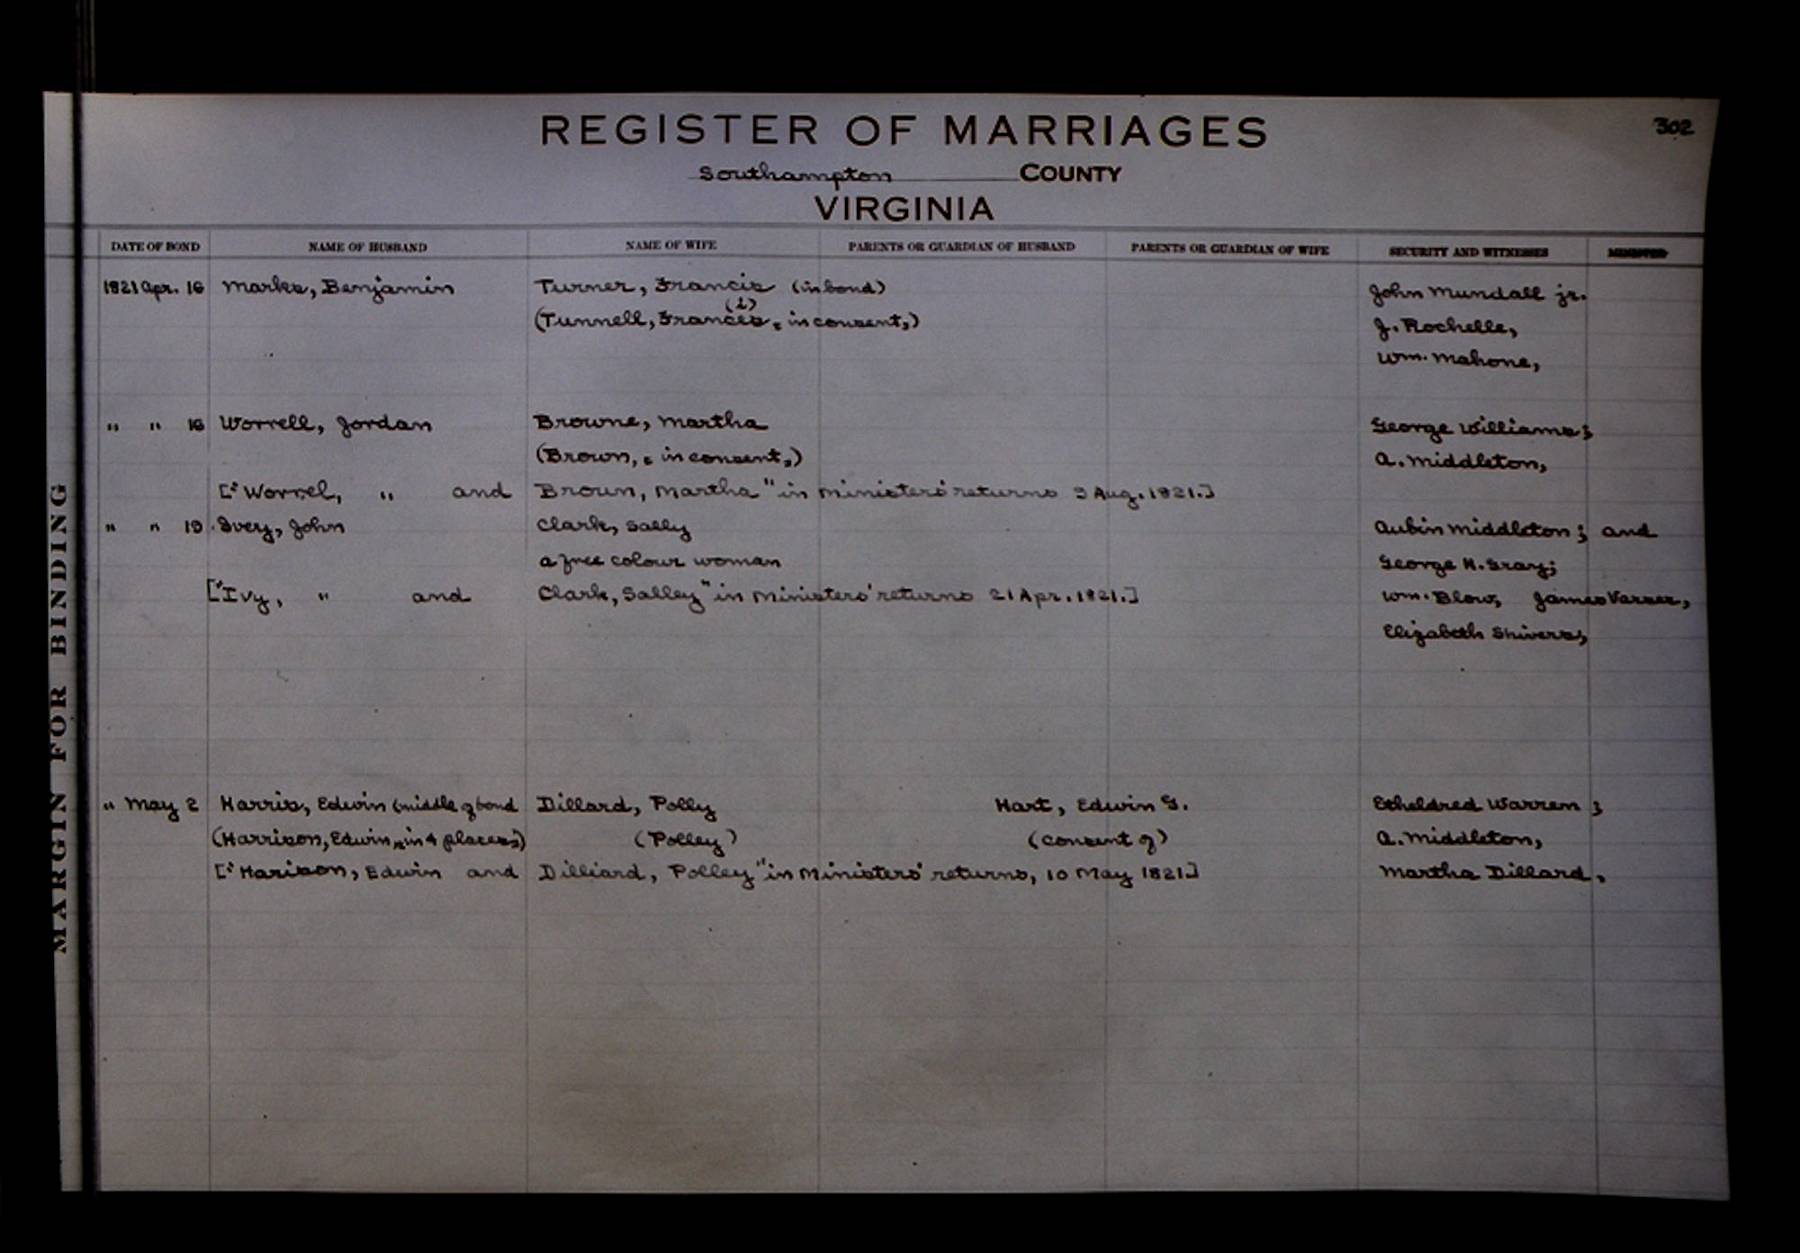 302
REGISTER OF MARRIAGES
Southampton COUNTY
VIRGINIA
MARGIN FOR BINDING
DATE OF BOND NAME OF HUSBAND NAME OF WIFE PARENTS OR GUARDIAN OF HUSBAND PARENTS OR GUARDIAN OF WIFE SECURITY AND WITNESSES MINISTER
1821 Apr. 16 Marks, Benjamin Turner, Francis (in bond) John Mundall jr.
(i)
(Tunnell, Frances, in consent,) J. Rochelle,
Wm. Mahone,
" " 16 Worrell, Jordan Browne, Martha George Williams;
(Brown, in consent,) A. Middleton,
[" Worrel, " and Broun, Martha" in Ministers' returns 9 Aug. 1821.]
" " 19 Ivey, John Clark, Sally Aubin Middleton; and
a free colour woman George H. Gray;
["Ivy, " and Clark, Salley" in Ministers' returns 21 Apr. 1821.] Wm. Blow, James Varser,
Elizabeth Shivers,
" May 2 Harris, Edwin (middle of bond Dillard, Polly Hart, Edwin G. Etheldred Warren ;
(Harrison, Edwin, in 4 places;) (Polley) (consent of) A. Middleton,
[" Harison, Edwin and Dilliard, Polley" in Ministers' returns, 10 May 1821] Martha Dillard,